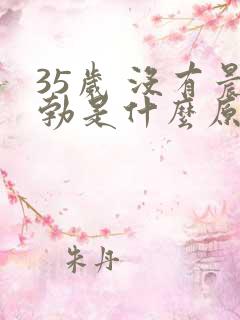 35歲 沒有晨
勃是什麼原
朱丹